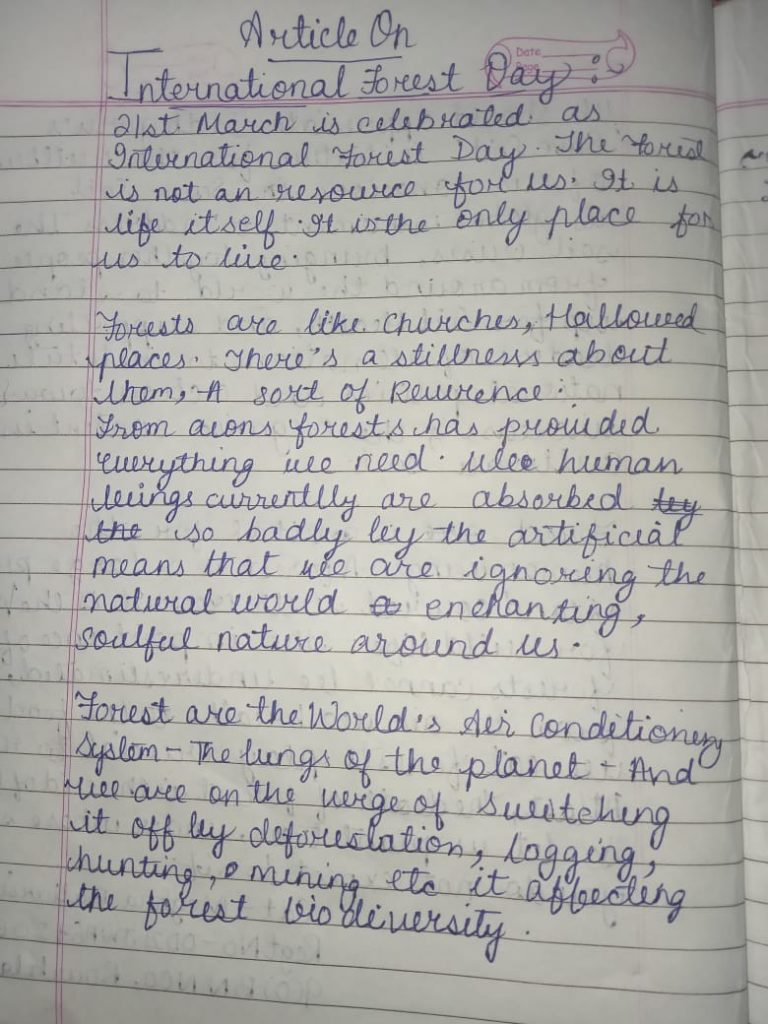 Article On
Date
International Forest Day:
21st March is celebrated as
International Forest Day. The Forest
is not an resource for us. It is
life itself. It is the only place for
us to live.
Forests are like Churches, Hallowed
places. There's a stillness about
them, A sort of Reverence.
From aeons forests has provided
everything we need. We human
beings currentlly are absorbed by
the so badly by the artificial
means that we are ignoring the
natural world enchanting,
soulful nature around us.
Forest are the World's Air Conditionery
System - The lungs of the planet - And
we are on the verge of Switching
it off by deforestation, logging,
hunting, mining etc it affecting
the forest biodiversity.